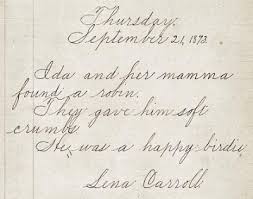 Thursday.
September 21, 1873.
Ida and her mamma
found a robin.
They gave him soft
crumbs.
He was a happy birdie
Lena Carroll